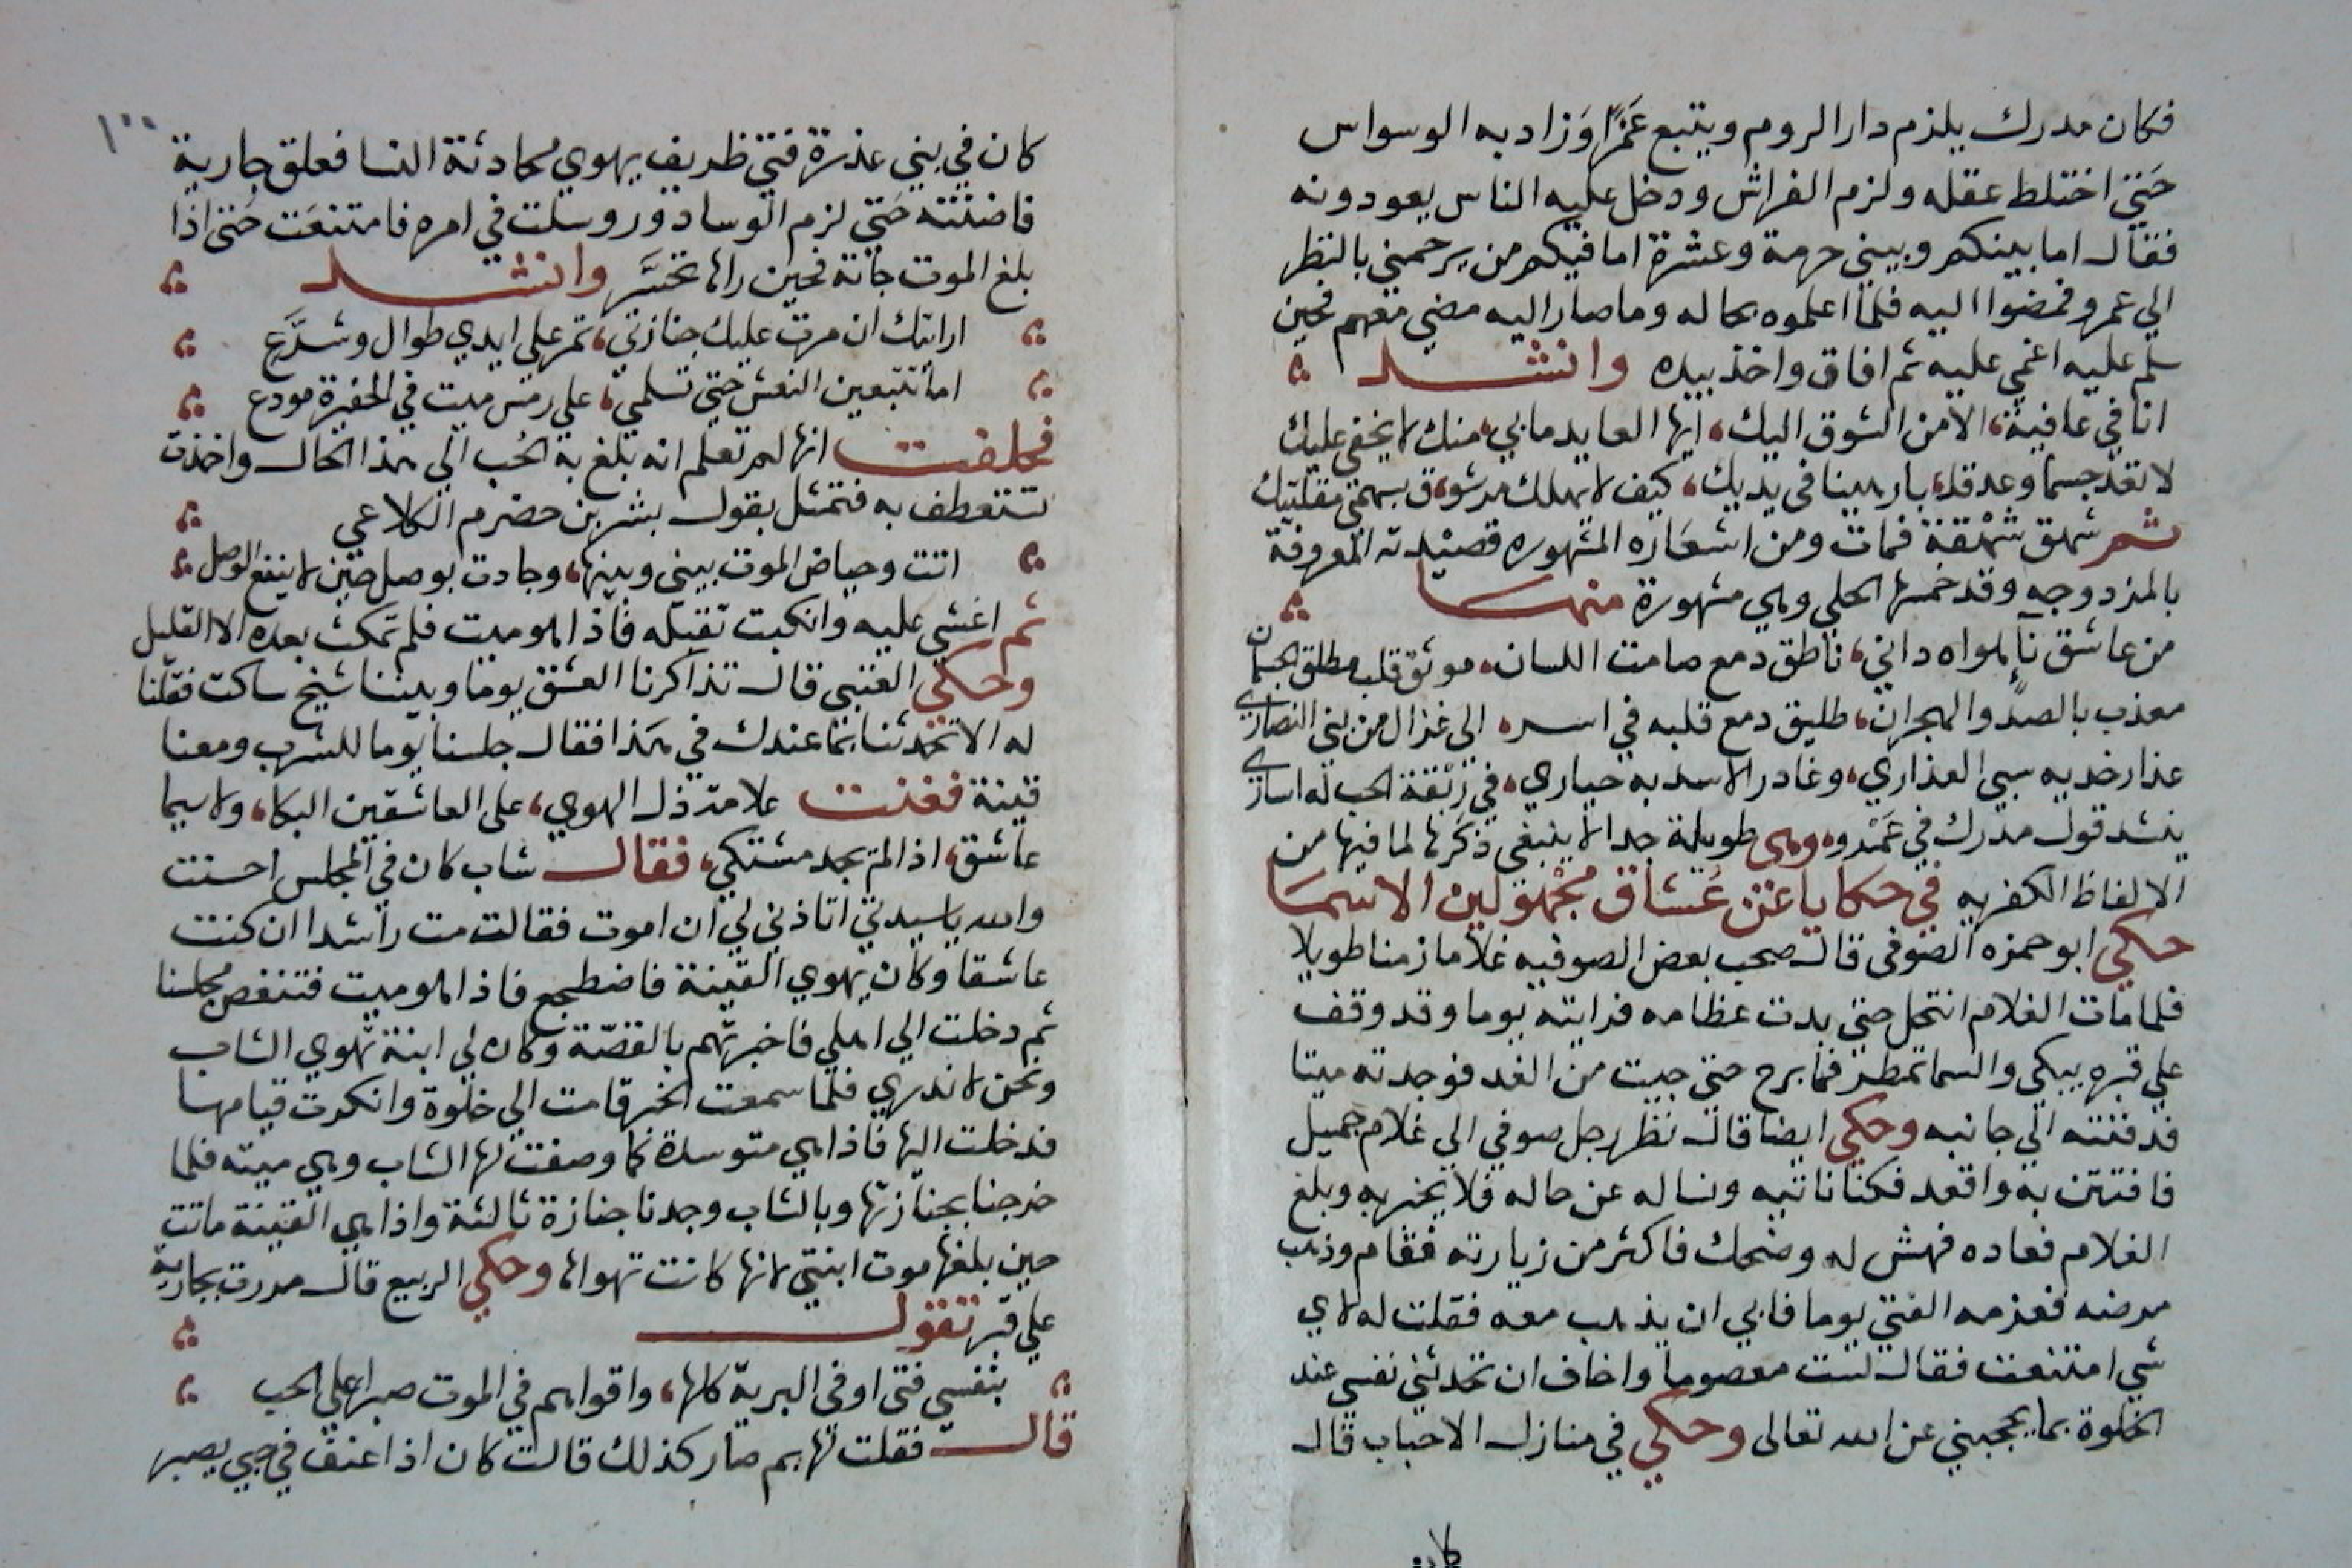 فكان مدرك يلزم دار الروم ويتبع عَمرًا وَزاد به الوسواس
حَتي اختلط عقله ولزم الفراش ودخل عليه الناس يعودونه
فقال اما بينكم وبيني حرمة وعشرة اما فيكم من يرحمني بالنظر
الي عمرو فمضوا اليه فلما اعلموه بحاله وما صار اليه مضي معهم فحين
سلم عليه اغمي عليه ثم افاق واخذ بيده وانشد
انا في عافية، الا من الشوق اليك، ايها العايد ما بي، منك لا يخفي عليك
لا تعد جسما وعد قلبا، رهينا في يديك، كيف لا يهلك مرشوق بسهمي مقلتيك
ثم شهق شهقة فمات ومن اشعاره المشهوره قصيدته المعروفة
بالمزدوجه وقد خمسها الحلي وهي مشهورة منها
من عاشق نآء هواه داني، ناطق دمع صامت اللسان، موثق قلب مطلق الجسمان
معذب بالصدّ والهجران، طليق دمع قلبه في اسره الي غزال من بني النصاري
عذار خديه سبي العذاري، وغادر الاسد به حياري، في ربقة الحب له اساري
ينشد قول مدرك في عَمْرو، وهي طويلة جدا لا ينبغي ذكرها لما فيها من
الالفاظ الكفريه في حكايا عن عُشاق مجْهولين الاسما
حكي ابو حمزه الصوفي قال صحب بعض الصوفيه غلاما زمنا طويلا
فلما مات الغلام انتحل حتي بدت عظامه فرايته يوما وقد وقف
علي قبره يبكي والسما تمطر فما برح حتي جيت من الغد فوجدته ميتا
فدفنته الي جانبه وحكي ايضا قال نظر رجل صوفي الي غلام جميل
فافتتن به واقعد فكنا ناتيه ونساله عن حاله فلا يخبر به وبلغ
الغلام فعاده فهش له وضحك فاكثر من زيارته فقام وذهب
مرضه فعزمه الفتي يوما فابي ان يذهب معه فقلت له لاي
شي امتنعت فقال لست معصوما واخاف ان تحدثني نفسي عند
الخلوة بما يحجبني عن الله تعالى وحكي في منازل الاحباب قال
كان
١٠٠
كان في بني عذرة فتي ظريف يهوي محادثة النسا فعلق جارية
فاضنته حَتي لزم الوساد وروسلت في امره فامتنعَت حتي اذا
بلغ الموت جأته فحين راها تحسَّر وانشد
ارايتك ان مرت عليك جنازتي، تمر علي ايدي طوال وشرَّع
اما تتبعين النعش حتي تسلمي، علي رمس ميت في الحفيرة مودع
فحلفت انها لم تعلم انه بلغ به الحُب الي هذا الحال واخذت
تتعطف به فتمثل بقول بشر بن حضرم الكلاعي
اتت وحياض الموت بيني وبينها، وجادت بوصل حين لا ينفع الوصل
ثم اغشي عليه وانكبت تقبله فاذا هو ميت فلم تمكث بعده الا القليل
وحكي العتبي قال تذاكرنا العشق يوما وبيننا شيخ ساكت فقلنا
له الا تحدثنا بما عندك في هَذا فقال جلسنا يوما للشرب ومعنا
قينة فغنت علامة ذل الهوي، علي العاشقين البكا، ولا سيما
عاشق، اذا لم يجد مشتكي، فقال شاب كان في المجلس احسنت
والله يا سيدتي اتاذني لي ان اموت فقالت مت راشدا ان كنت
عاشقا وكان يهوي القينة فاضطجع فاذا هو ميت فتنغص مجلسنا
ثم دخلت الي اهلي فاخبرتهم بالقصّة وكان لي ابنة تهوي الشاب
ونحن لا ندري فلما سمعت الخبر قامت الي خلوة وانكرت قيامها
فدخلت اليها فاذا هي متوسدة كما وصفت لها الشاب وهي ميته فلما
خرجنا بجنازتها وبالشاب وجدنا جنازة ثالثة واذا هي القينة ماتت
حين بلغها موت ابنتي لانها كانت تهواها وحكي الربيع قال مررت بجارية
علي قبر تقول
بنفسي فتي اوفي البرية كلها، واقواهم في الموت صبرا علي الحب
قال فقلت لها بم صار كذلك قالت كان اذا عنف في حبي يصبر